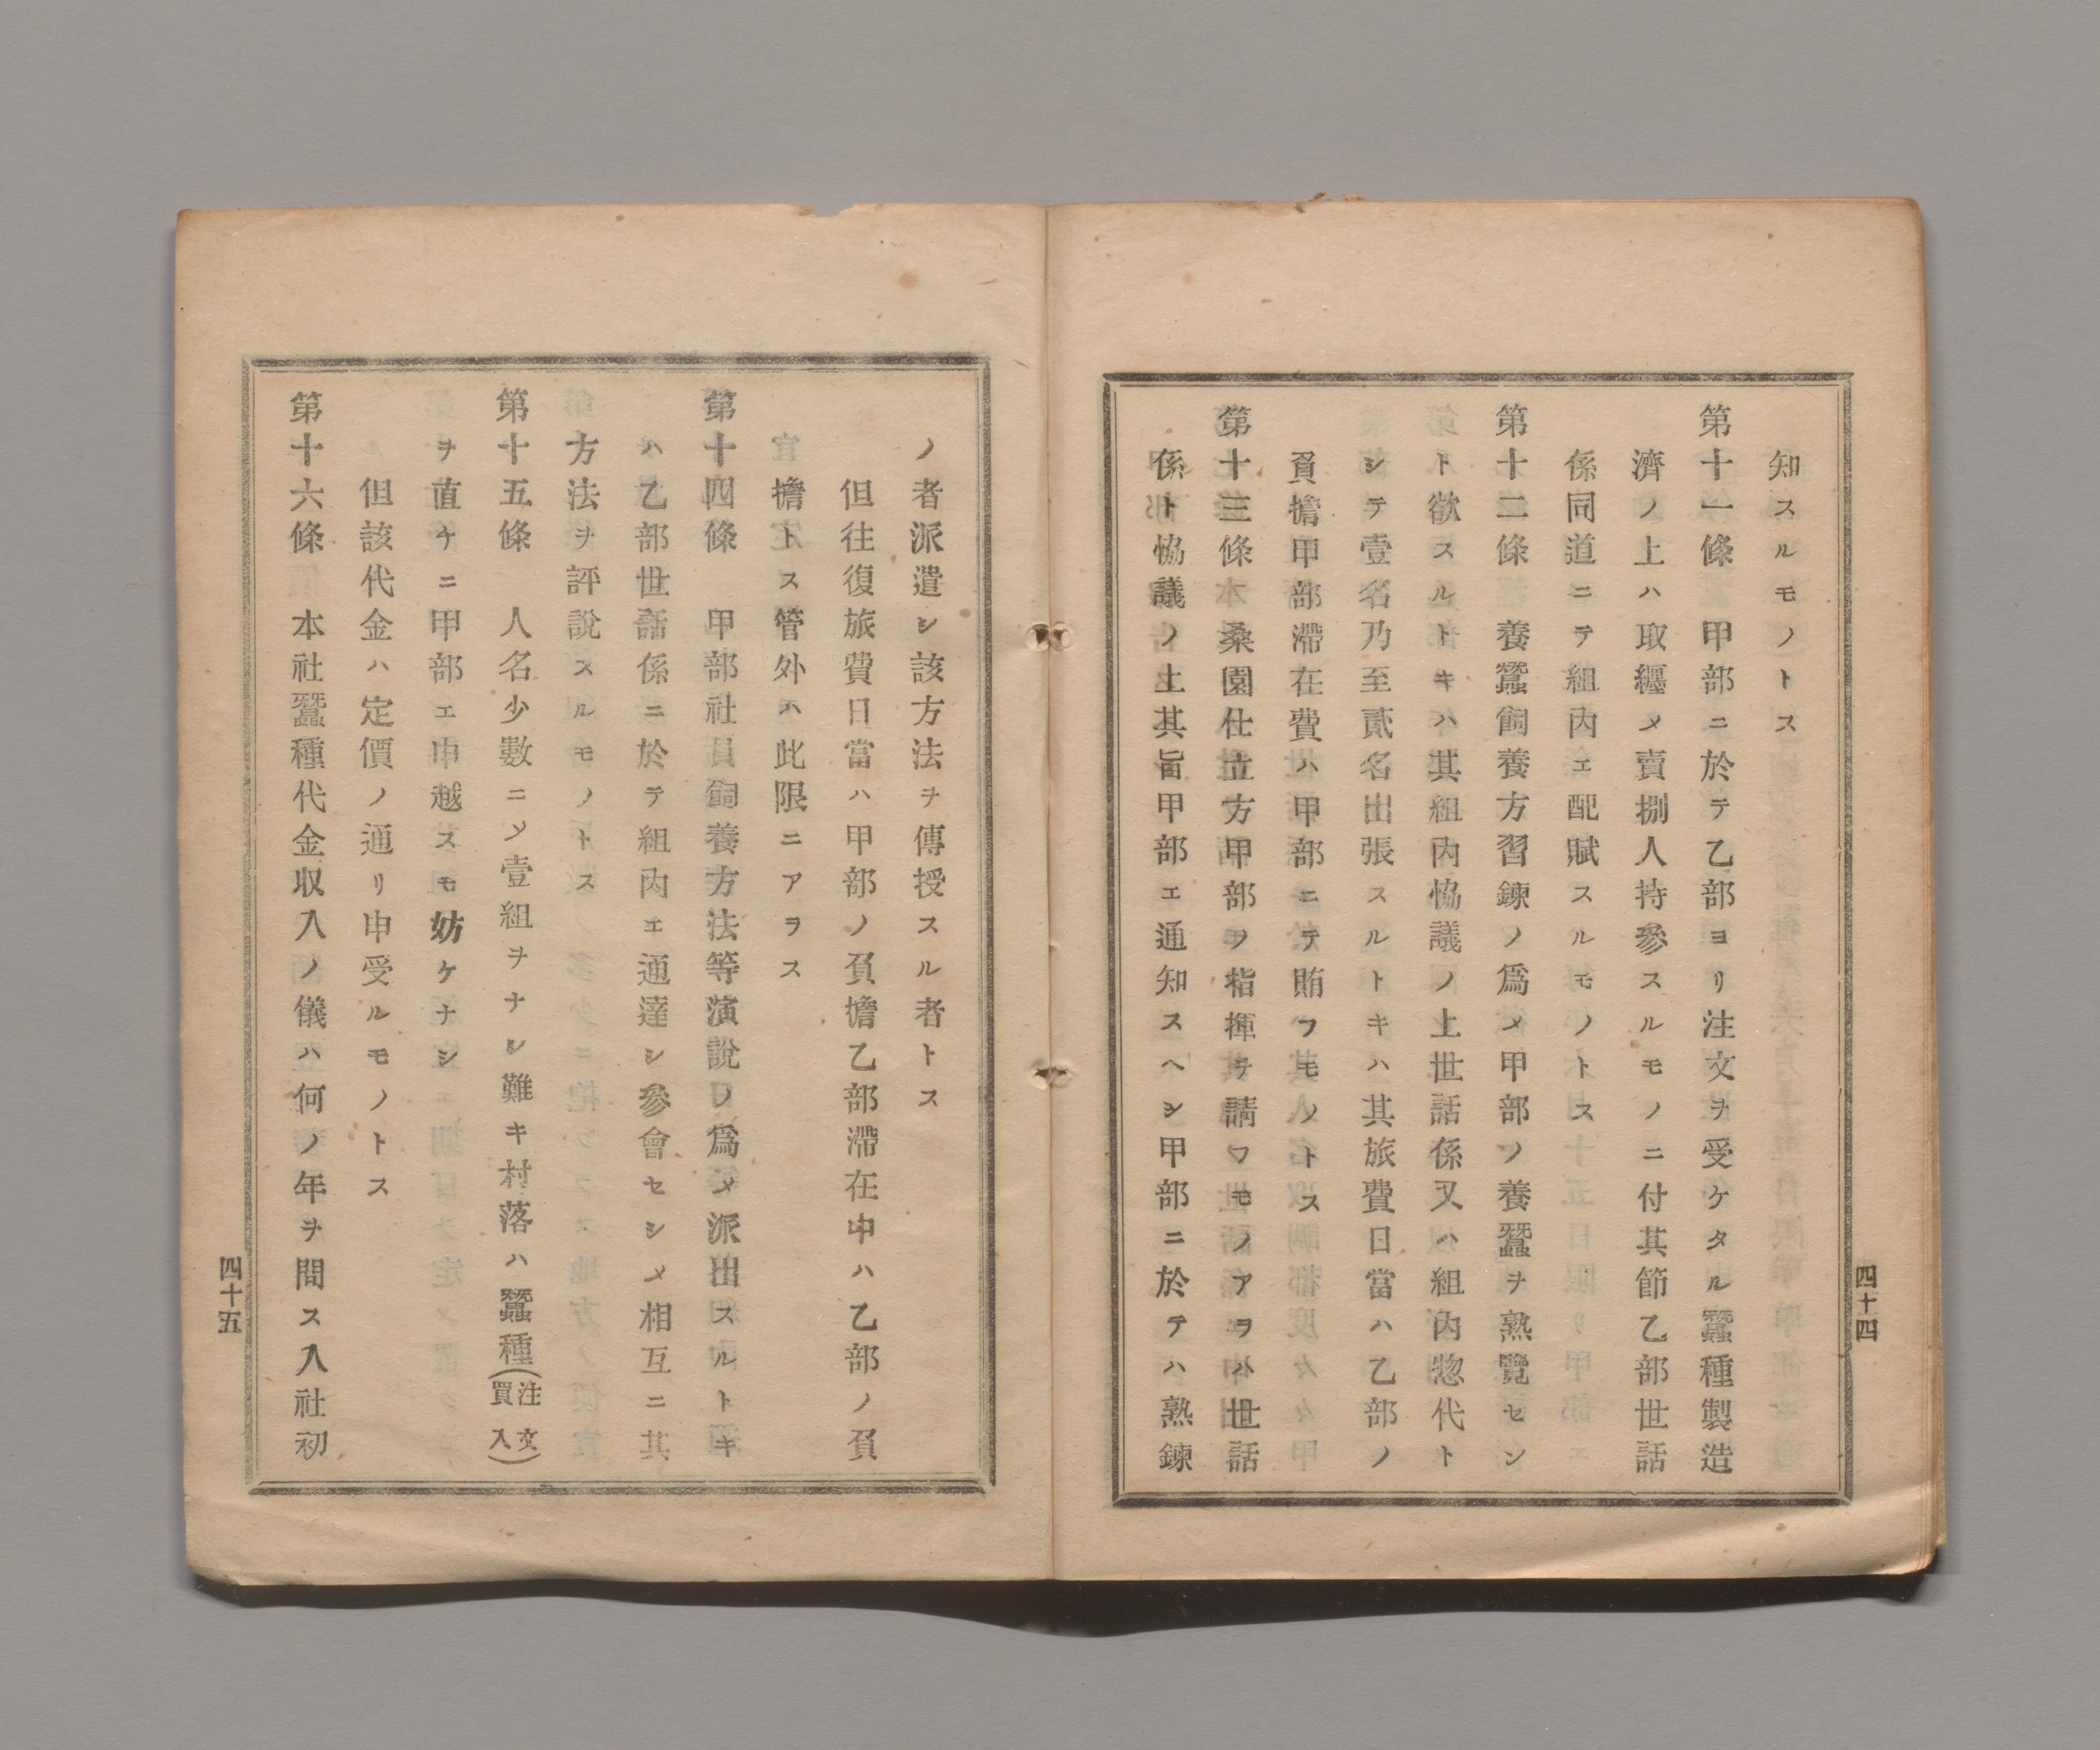 知スルモノトス
第十一條　甲部ニ於テ乙部ヨリ注文ヲ受ケタル蠶種製造
濟ノ上ハ取纒メ賣捌人持參スルモノニ付其節乙部世話
係同道ニテ組内エ配賦スルモノトス
第十二條　養蠶飼養方習鍊ノ爲メ甲部ノ養蠶ヲ熟覽セン
ト欲スルトキハ其組内恊議ノ上世話係又ハ組内惣代ト
シテ壹名乃至貳名出張スルトキハ其旅費日當ハ乙部ノ
負擔甲部滯在費ハ甲部ニテ賄フモノトス
第十三條　桑園仕立方甲部ヲ指揮ヲ請フモノアラハ世話
係ト恊議ノ上其旨甲部エ通知スヘシ甲部ニ於テハ熟鍊
四十四
ノ者派遣シ該方法ヲ傳授スル者トス
但往復旅費日當ハ甲部ノ負擔乙部滯在中ハ乙部ノ負
擔トス管外ハ此限ニアラス
第十四條　甲部社員飼養方法等演說ノ爲メ派出スルトキ
ハ乙部世話係ニ於テ組内エ通達シ參會セシメ相互ニ其
方法ヲ評說スルモノトス
第十五條　人名少數ニシテ壹組ヲナシ難キ村落ハ蠶種(注文買入)
ヲ值ケニ甲部エ申越スモ妨ケナシ
但該代金ハ定價ノ通リ申受ルモノトス
第十六條　本社蠶種代金収入ノ儀ハ何ノ年ヲ間ス入社初
四十五